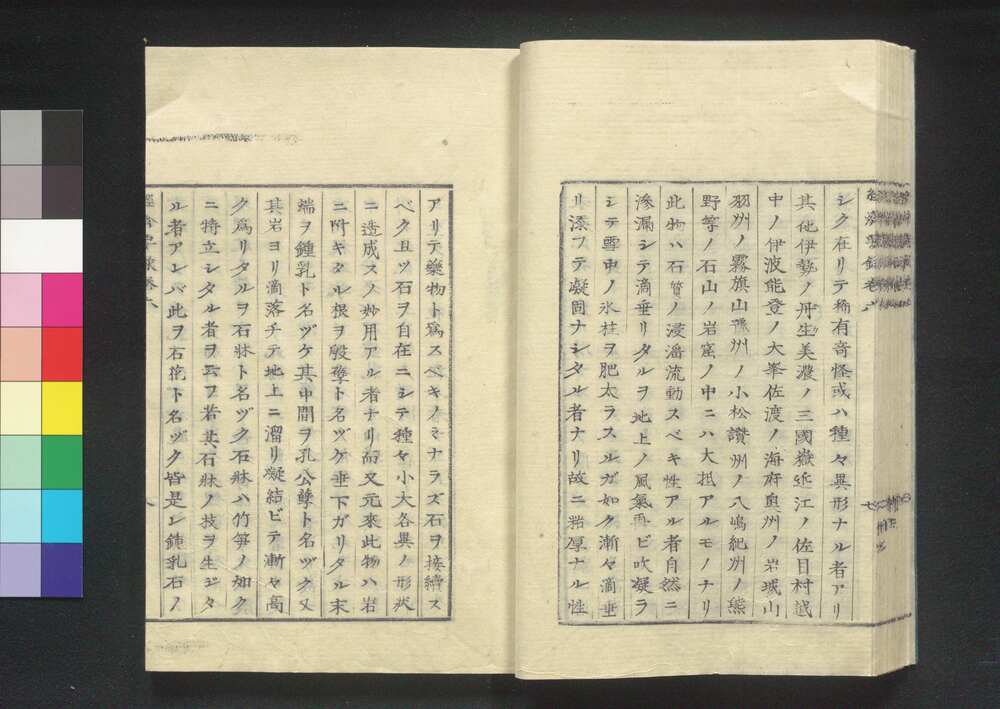 シク在リテ稀有奇怪或ハ種々異形ナル者アリ
其他伊勢ノ丹生美濃ノ三國嶽近江ノ佐目村越
中ノ伊波能登ノ大峯佐渡ノ海府奥州ノ岩城山
羽州ノ霧旗山豫州ノ小松讃州ノ八嶋紀州ノ熊
野等ノ石山ノ岩窟ノ中ニハ大抵アルモノナリ
此物ハ石質ノ浸潘流動スベキ性アル者自然ニ
滲漏シテ滴垂リタルヲ地上ノ風氣再ビ吹凝ラ
シテ雪中ノ氷柱ヲ肥太ラスルガ如ク漸々滴垂
リ添フテ凝固ナシタル者ナリ故ニ粘厚ナル性
アリテ藥物ト爲スベキノミナラズ石ヲ接續ス
ベク且ツ石ヲ自在ニシテ種々小大各異ノ形狀
ニ造成スノ妙用アル者ナリ而又元來此物ハ岩
ニ附キタル根ヲ殷孽ト名ヅケ垂下ガリタル末
端ヲ鍾乳ト名ヅケ其中間ヲ孔公孽ト名ヅク又
其岩ヨリ滴落チテ地上ニ溜リ凝結ビテ漸々高
ク爲リタルヲ石牀ト名ヅク石牀ハ竹笋ノ如ク
ニ特立シタル者ヲ云フ若其石牀ノ枝ヲ生ジタ
ル者アレバ此ヲ石花ト名ヅク皆是レ鍾乳石ノ
八